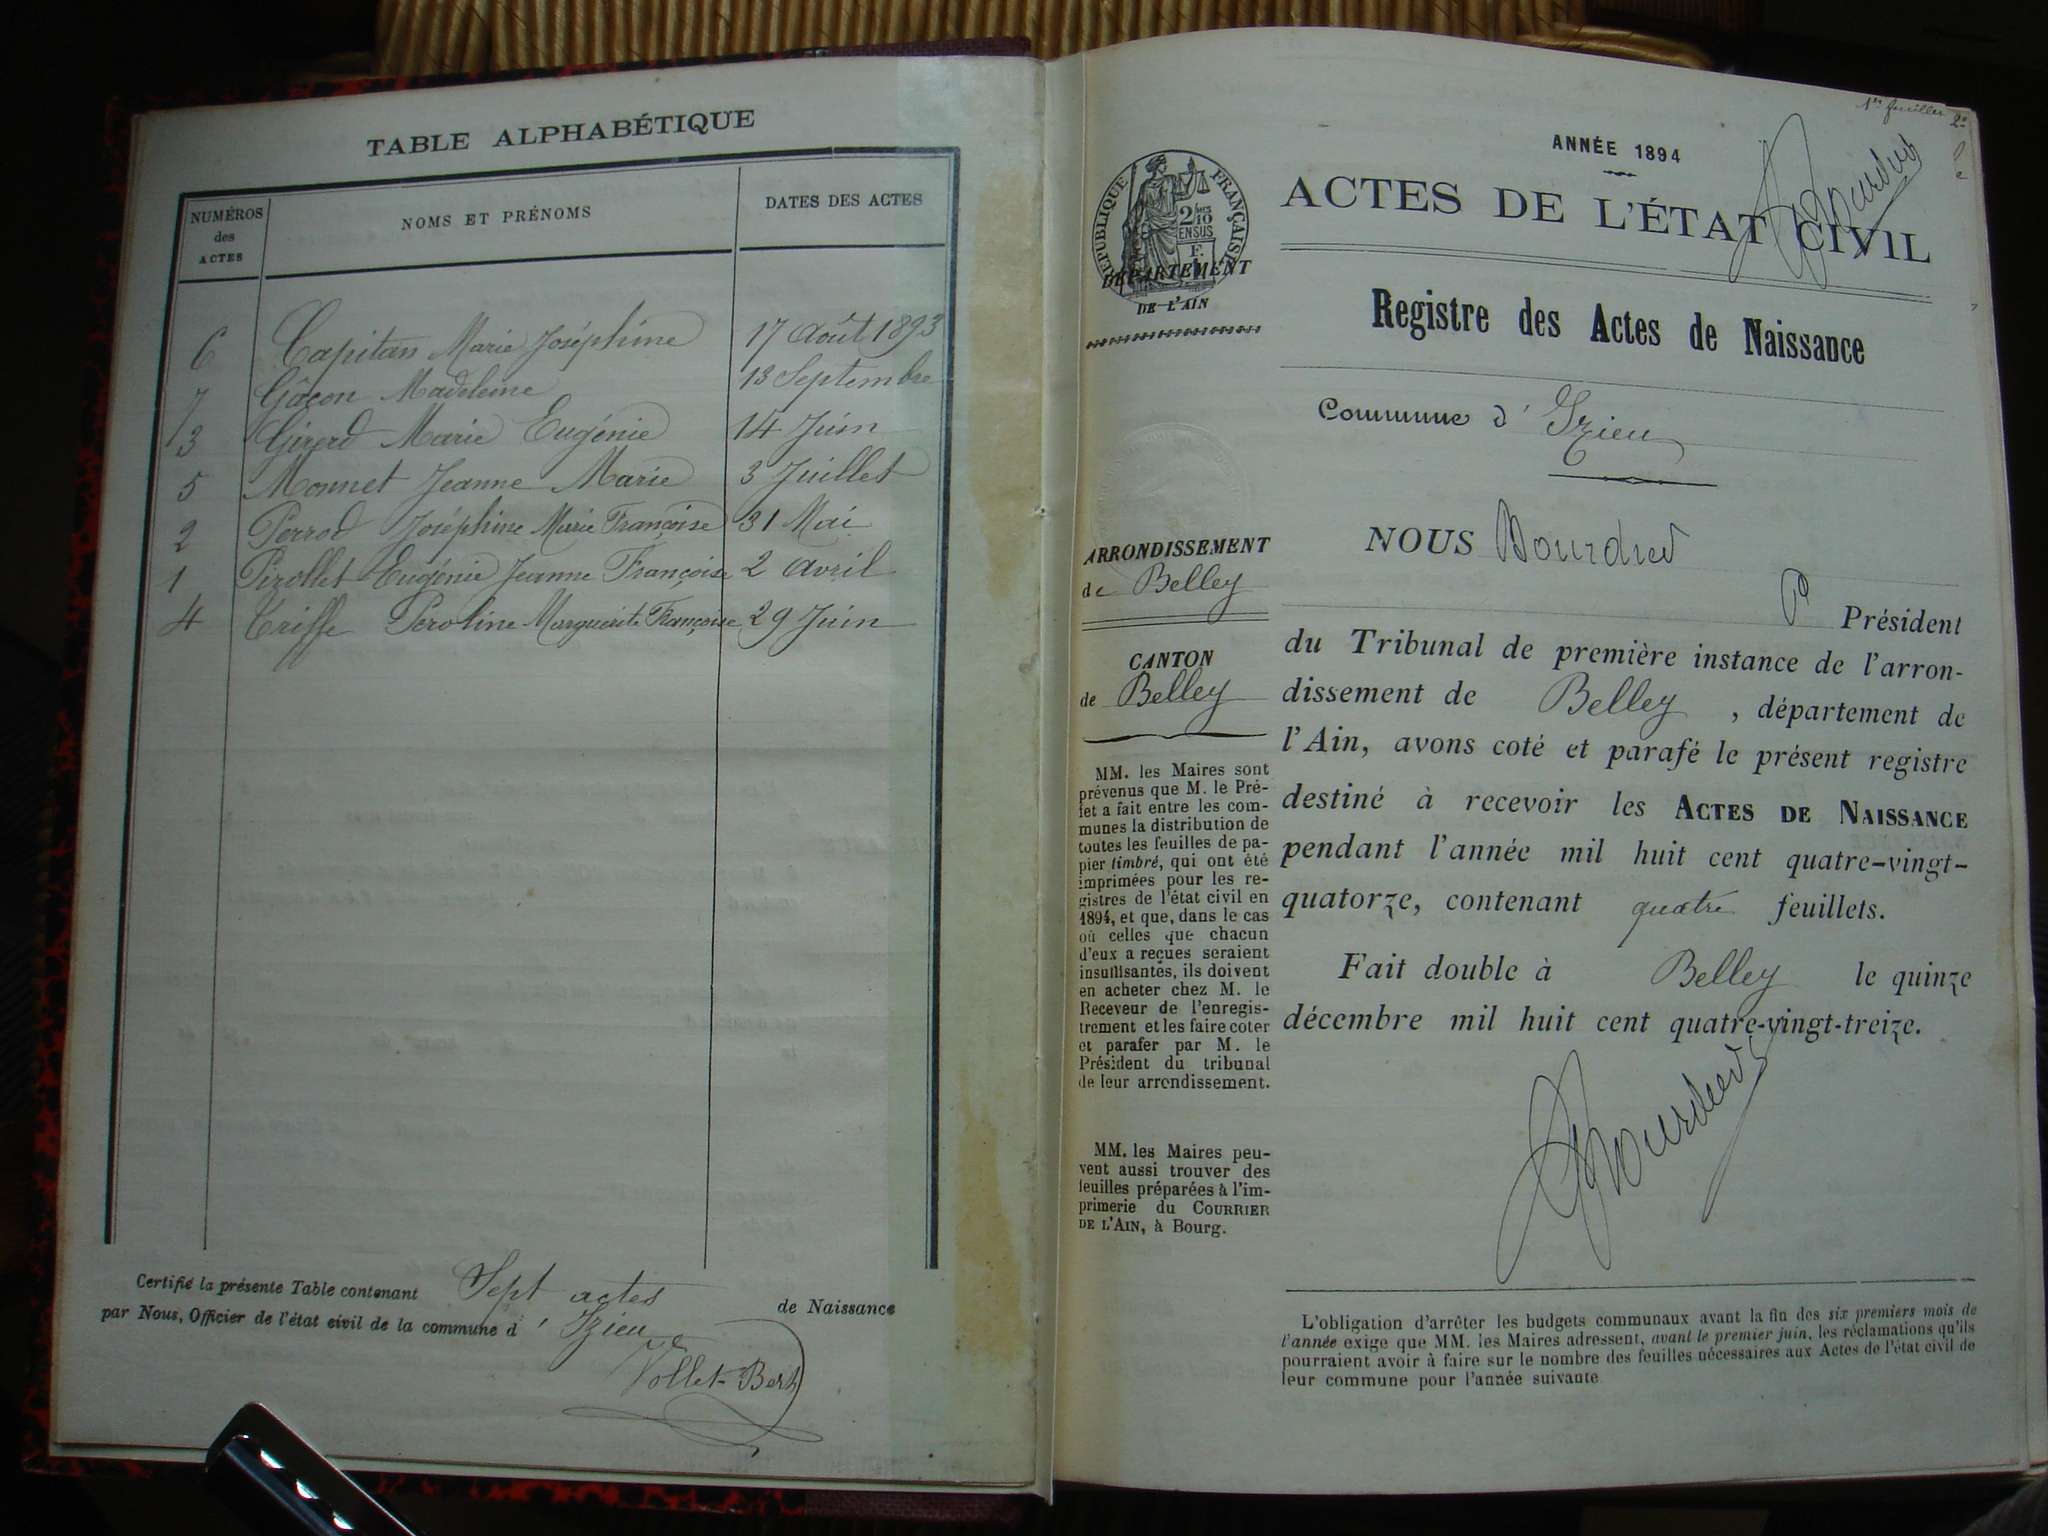 TABLE ALPHABÉTIQUE
NUMÉROS des ACTES NOMS ET PRÉNOMS DATES DES ACTES
6 Capitan Marie Joséphine 17 Août 1893
7 Gâcon Madeleine 13 Septembre
3 Girerd Marie Eugénie 14 Juin
5 Monnet Jeanne Marie 3 Juillet
2 Perrod Joséphine Marie Françoise 31 Mai
1 Pirollet Eugénie Jeanne Françoise 2 Avril
4 Triffe Péroline Marguerite Françoise 29 Juin
Certifié la présente Table contenant Sept actes de Naissance
par Nous, Officier de l'état civil de la commune d' Izieu
1er feuillet
ANNÉE 1894
ACTES DE L'ÉTAT CIVIL
RÉPUBLIQUE FRANÇAISE
DÉPARTEMENT
DE L'AIN
Registre des Actes de Naissance
Commune d' Izieu
ARRONDISSEMENT
de Belley
CANTON
de Belley
MM. les Maires sont
prévenus que M. le Pré-
fet a fait entre les com-
munes la distribution de
toutes les feuilles de pa-
pier timbré, qui ont été
imprimées pour les re-
gistres de l'état civil en
1894, et que, dans le cas
où celles que chacun
d'eux a reçues seraient
insuffisantes, ils doivent
en acheter chez M. le
Receveur de l'enregis-
trement et les faire coter
et parafer par M. le
Président du tribunal
de leur arrondissement.
MM. les Maires peu-
vent aussi trouver des
feuilles préparées à l'im-
primerie du COURRIER
DE L'AIN, à Bourg.
NOUS
Président
du Tribunal de première instance de l'arron-
dissement de Belley, département de
l'Ain, avons coté et parafé le présent registre
destiné à recevoir les ACTES DE NAISSANCE
pendant l'année mil huit cent quatre-vingt-
quatorze, contenant quatre feuillets.
Fait double à Belley le quinze
décembre mil huit cent quatre-vingt-treize.
L'obligation d'arrêter les budgets communaux avant la fin des six premiers mois de
l'année exige que MM. les Maires adressent, avant le premier juin, les réclamations qu'ils
pourraient avoir à faire sur le nombre des feuilles nécessaires aux Actes de l'état civil de
leur commune pour l'année suivante